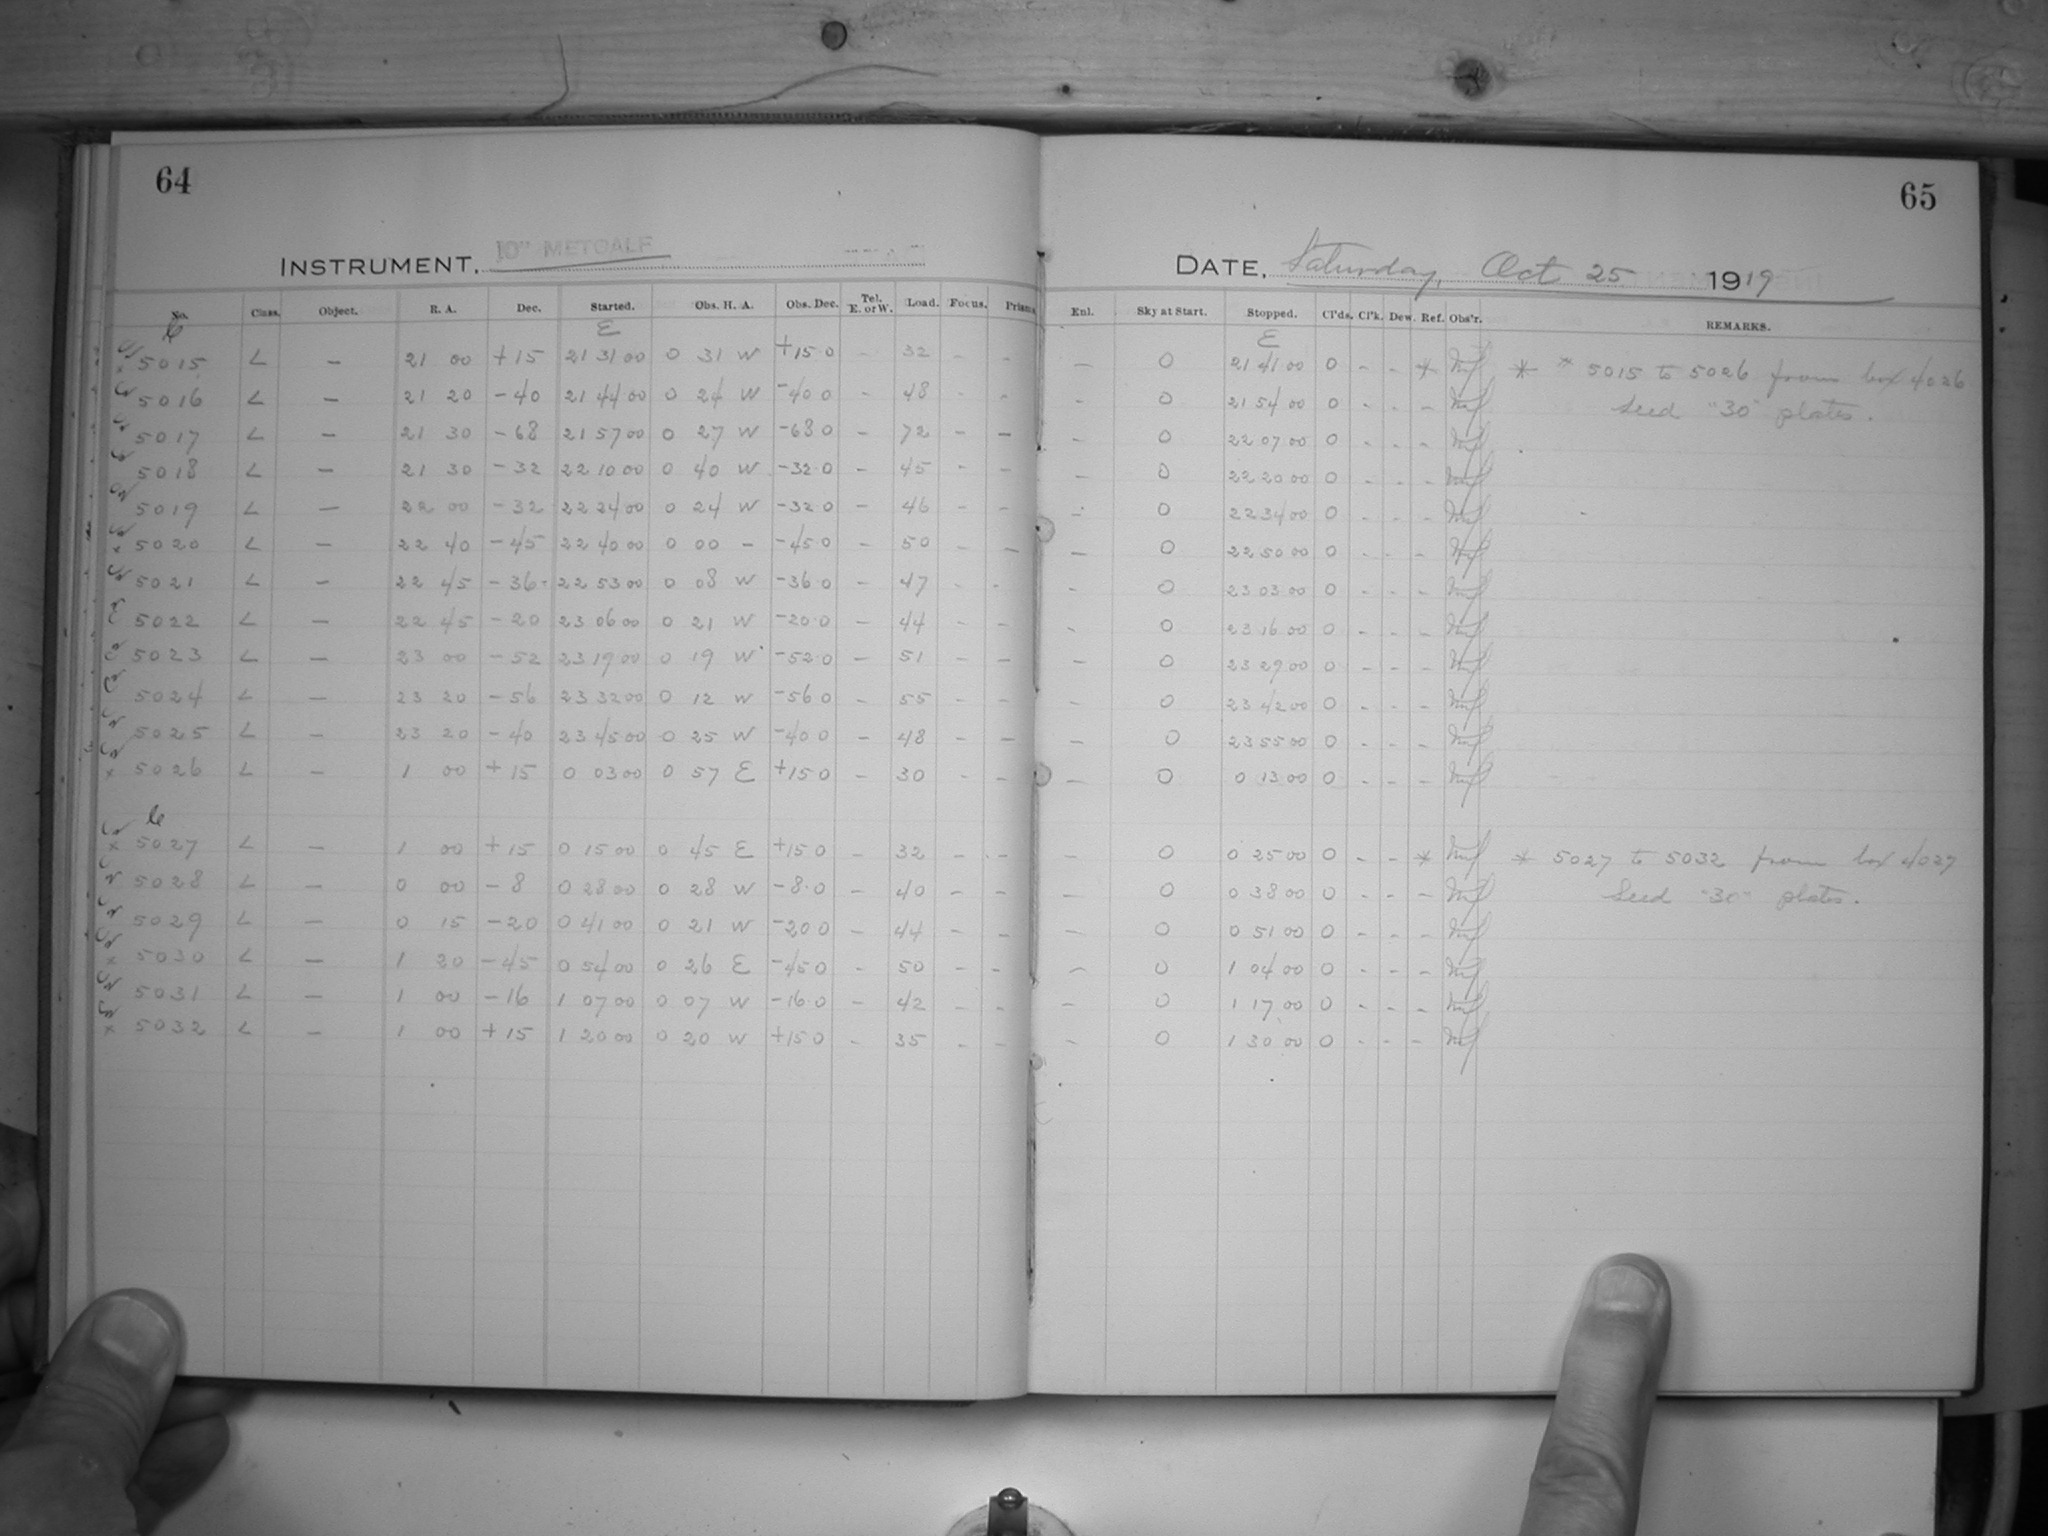 64
INSTRUMENT, 10" METCALF
No. Class. Object. R. A. Dec. Started. Obs. H. A. Obs. Dec. Tel. E. or W. Load. Focus. Prisms
E
5015 L — 21 00 +15 21 31 00 0 31 W +15 0 - 32 - -
5016 L — 21 20 -40 21 44 00 0 24 W -40 0 - 48 - -
5017 L — 21 30 -68 21 57 00 0 27 W -68 0 - 72 - -
5018 L — 21 30 -32 22 10 00 0 40 W -32 0 - 45 - -
5019 L — 22 00 -32 22 24 00 0 24 W -32 0 - 46 - -
5020 L — 22 40 -45 22 40 00 0 00 - -45 0 - 50 - -
5021 L — 22 45 -36 22 53 00 0 08 W -36 0 - 47 - -
5022 L — 22 45 -20 23 06 00 0 21 W -20 0 - 44 - -
5023 L — 23 00 -52 23 19 00 0 19 W -52 0 - 51 - -
5024 L — 23 20 -56 23 32 00 0 12 W -56 0 - 55 - -
5025 L — 23 20 -40 23 45 00 0 25 W -40 0 - 48 - -
5026 L — 1 00 +15 0 03 00 0 57 E +15 0 - 30 - -
5027 L — 1 00 +15 0 15 00 0 45 E +15 0 - 32 - -
5028 L — 0 00 -8 0 28 00 0 28 W -8 0 - 40 - -
5029 L — 0 15 -20 0 41 00 0 21 W -20 0 - 44 - -
5030 L — 1 20 -45 0 54 00 0 26 E -45 0 - 50 - -
5031 L — 1 00 -16 1 07 00 0 07 W -16 0 - 42 - -
5032 L — 1 00 +15 1 20 00 0 20 W +15 0 - 35 - -
65
DATE, Saturday, Oct 25 1919
Enl. Sky at Start. Stopped. Cl'ds. Cl'k. Dew. Ref. Obs'r. REMARKS.
E
- 0 21 41 00 0 - - * * * 5015 to 5026 from box 4026
- 0 21 54 00 0 - - - Seed "30" plates.
- 0 22 07 00 0 - - -
- 0 22 20 00 0 - - -
- 0 22 34 00 0 - - -
- 0 22 50 00 0 - - -
- 0 23 03 00 0 - - -
- 0 23 16 00 0 - - -
- 0 23 29 00 0 - - -
- 0 23 42 00 0 - - -
- 0 23 55 00 0 - - -
- 0 0 13 00 0 - - -
- 0 0 25 00 0 - - * * 5027 to 5032 from box 4027
- 0 0 38 00 0 - - - Seed "30" plates.
- 0 0 51 00 0 - - -
- 0 1 04 00 0 - - -
- 0 1 17 00 0 - - -
- 0 1 30 00 0 - - -